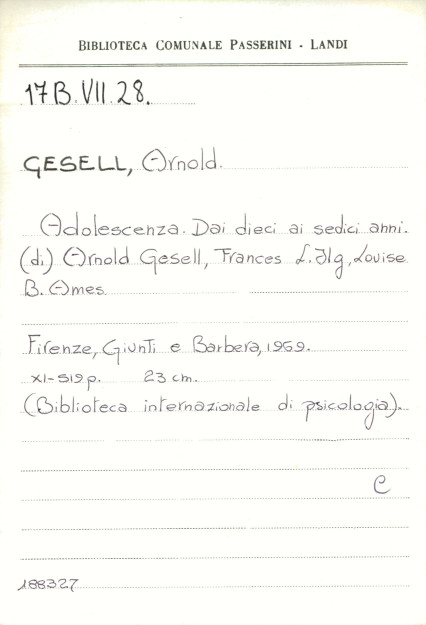 BIBLIOTECA COMUNALE PASSERINI - LANDI
17B.VII.28.
GESELL, Arnold.
Adolescenza. Dai dieci ai sedici anni.
(di) Arnold Gesell, Frances L. Ilg, Louise
B. Ames
Firenze, Giunti e Barbera, 1959.
XI-519 p. 23 cm.
(Biblioteca internazionale di psicologia).
C
188327